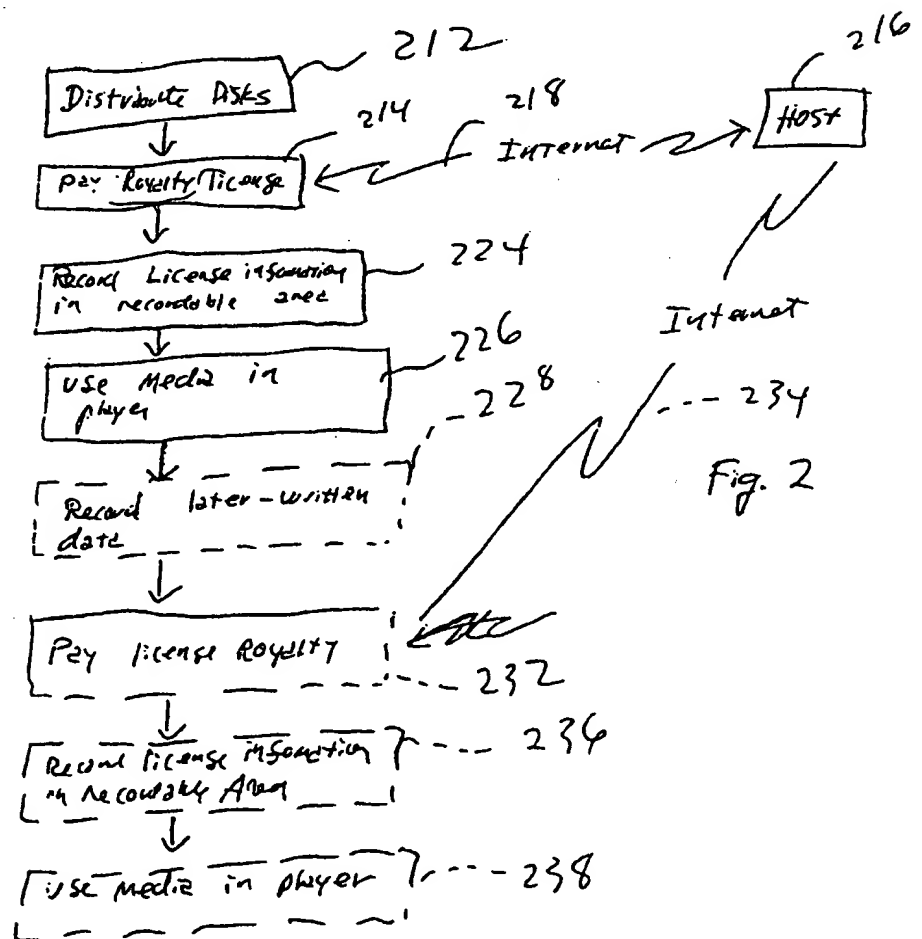 212
216
Distribute Disks
214
218
Internet
Host
Pay Royalty License
224
Record License information
in recordable area
Internet
226
Use Media in
player
228
234
Fig. 2
Record later-written
data
Pay license Royalty
232
Record license information
in recordable Area
236
Use Media in player
238